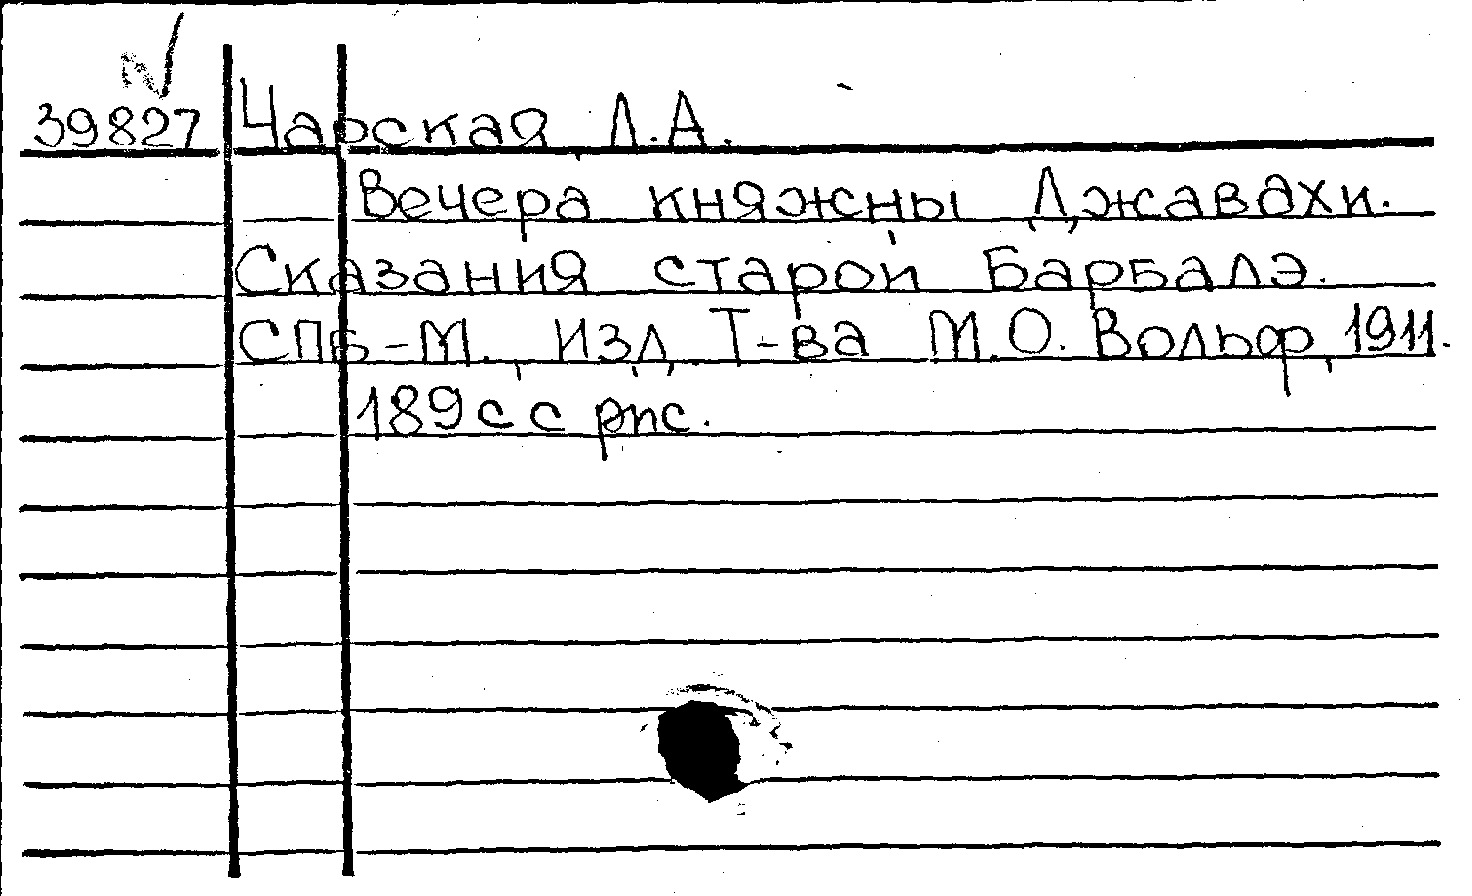 39827 Чарская, Л.А.
Вечера княжны Джавахи.
Сказания старой Барбалэ.
СПб-М., Изд. Т-ва М.О. Вольф, 1911.
189с с рис.